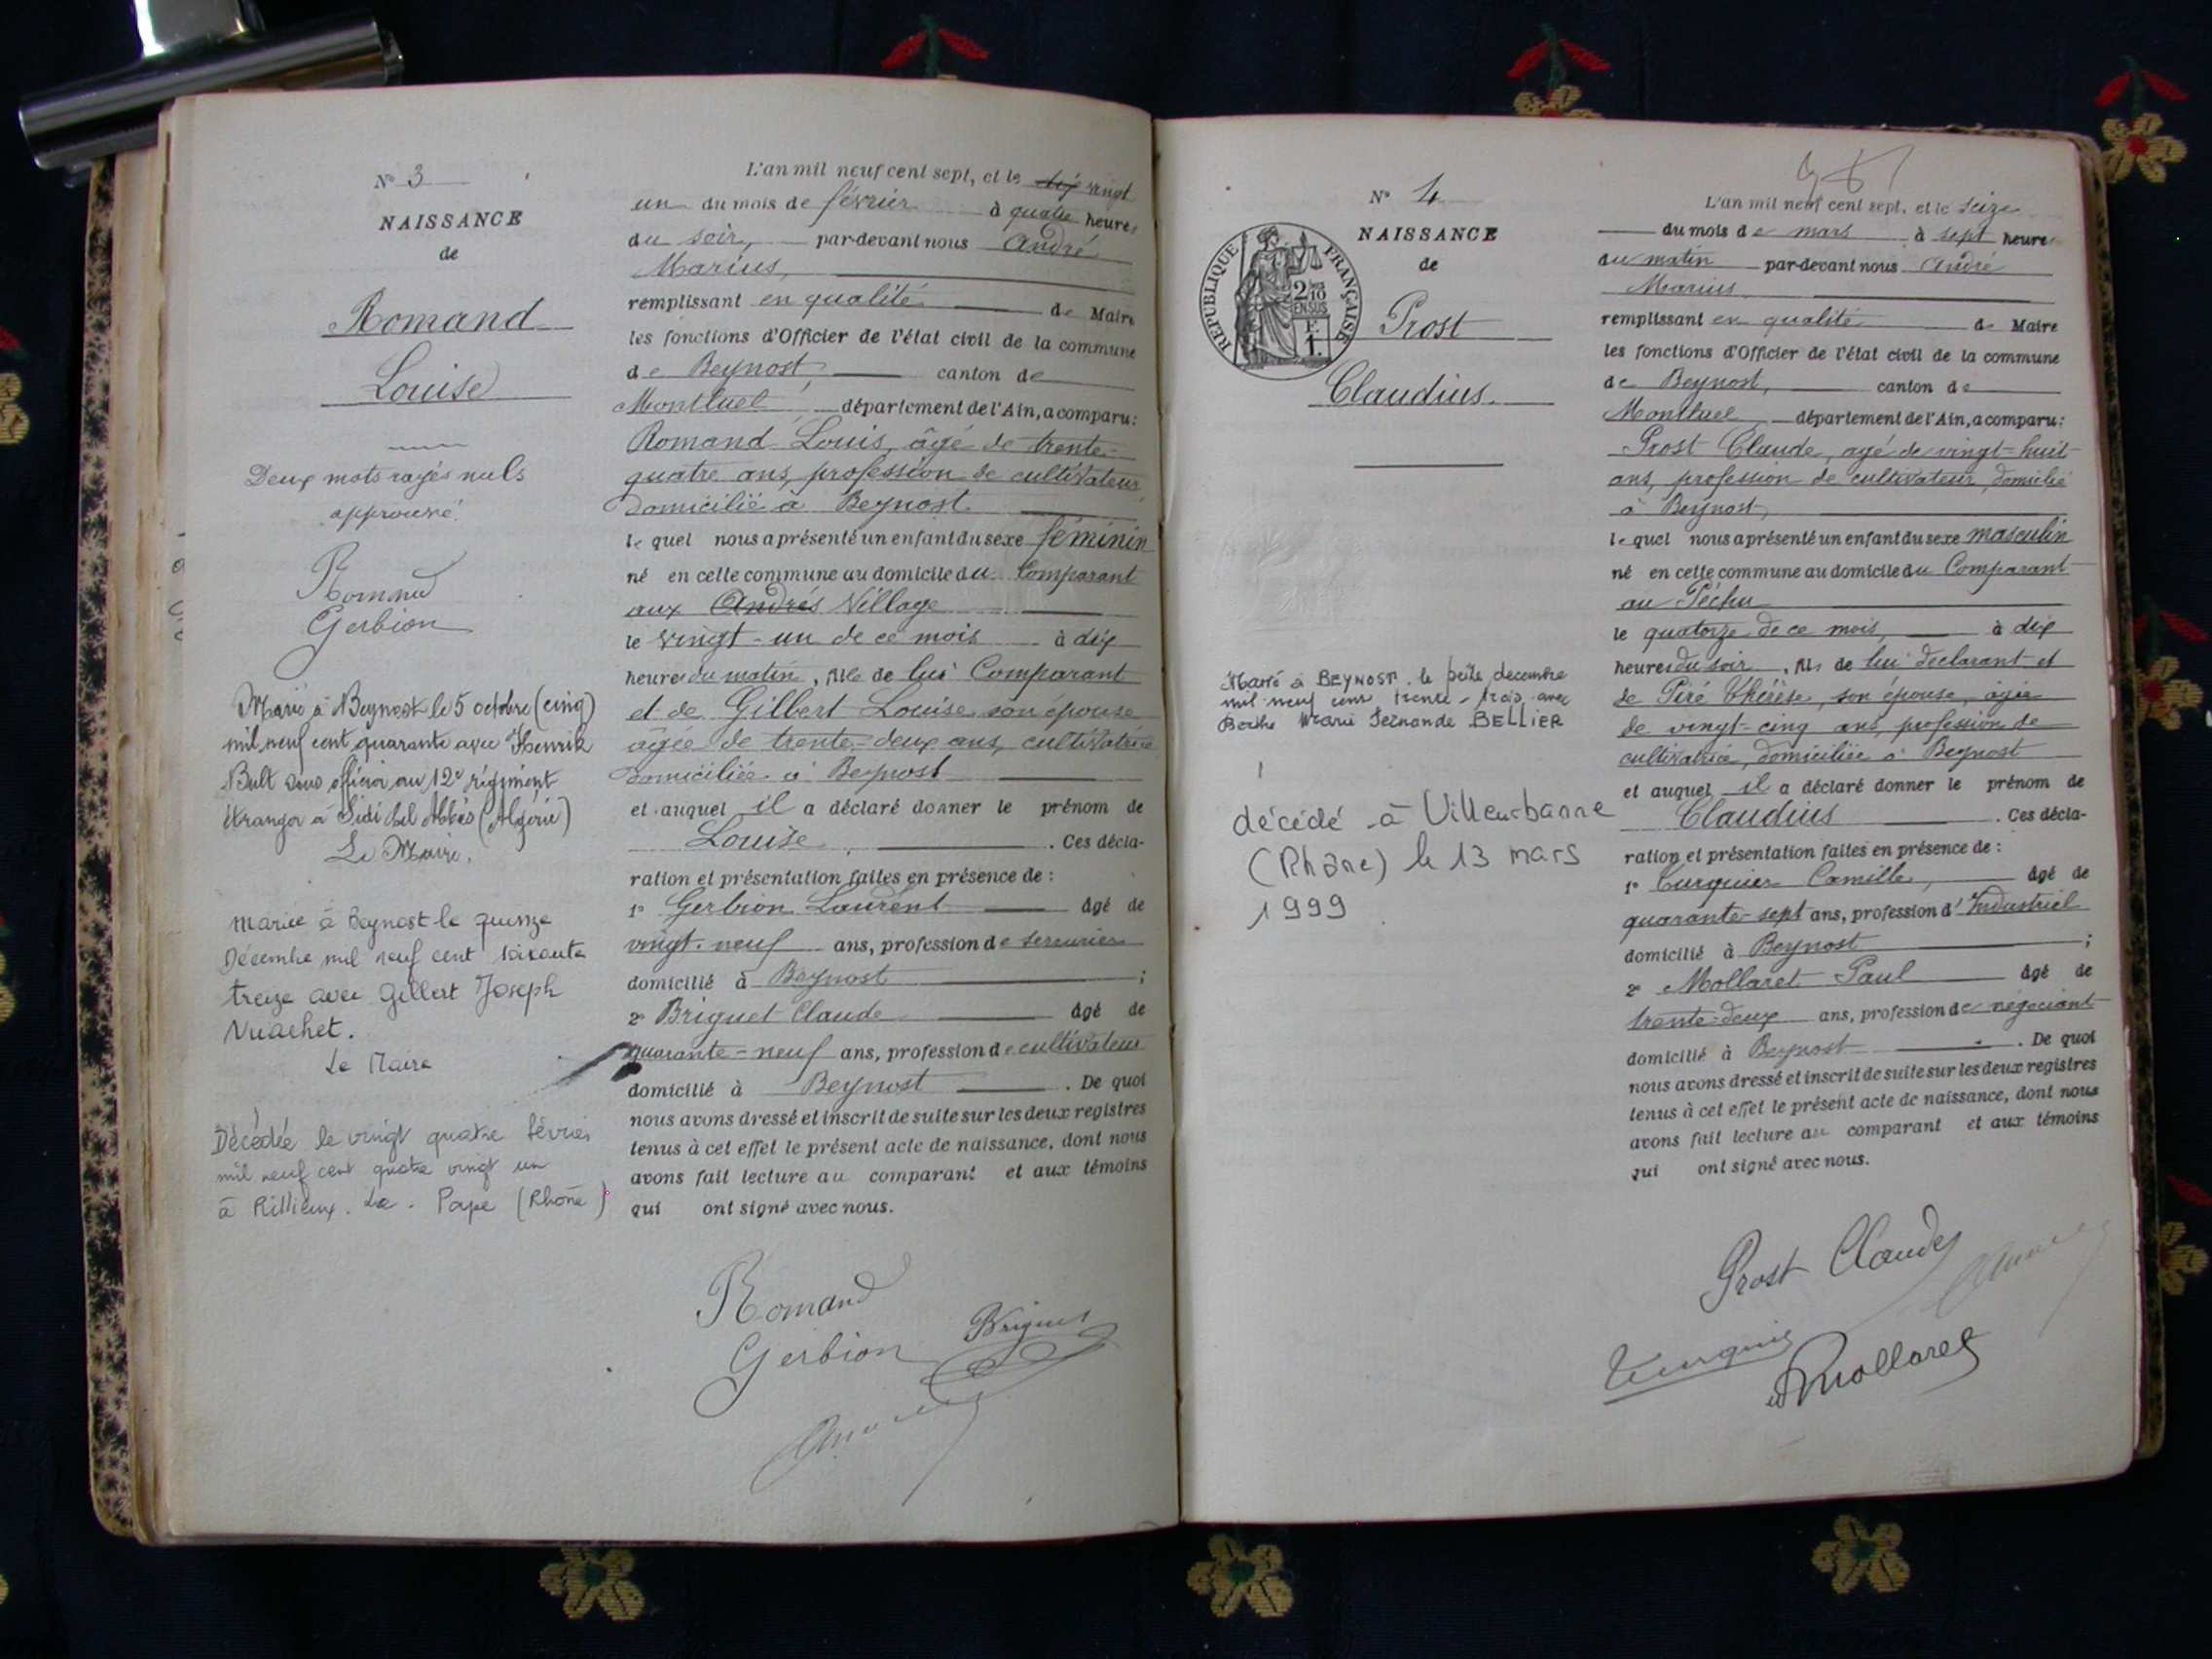 N° 3
NAISSANCE
de
Romand
Louise
Deux mots rayés nuls
approuvé.
Romand
Gerbion
Marié à Beynost le 5 octobre (cinq)
mil neuf cent quarante avec Henrik
Bult sous officier au 12e régiment
étranger à Sidi bel Abbès (Algérie)
Le Maire.
Mariée à Beynost le quinze
Décembre mil neuf cent soixante
treize avec Gilbert Joseph
Vuachet.
Le Maire
Décédée le vingt quatre février
mil neuf cent quatre vingt un
à Rillieux-La-Pape (Rhône)
L'an mil neuf cent sept, et le dix vingt
un du mois de février à quatre heures
du soir, par-devant nous André
Marius,
remplissant en qualité de Maire
les fonctions d'Officier de l'état civil de la commune
de Beynost, canton de
Montluel, département de l'Ain, a comparu:
Romand Louis, âgé de trente-
quatre ans, profession de cultivateur
domicilié à Beynost.
lequel nous a présenté un enfant du sexe féminin
né en cette commune au domicile du Comparant
aux Andrés Village
le vingt-un de ce mois à dix
heures du matin, fille de lui Comparant
et de Gilbert Louise son épouse
âgée de trente-deux ans, cultivatrice
domiciliée à Beynost
et auquel il a déclaré donner le prénom de
Louise. Ces décla-
ration et présentation faites en présence de :
1° Gerbion Laurent âgé de
vingt-neuf ans, profession de serrurier
domicilié à Beynost ;
2° Briguet Claude âgé de
quarante-neuf ans, profession de cultivateur
domicilié à Beynost. De quoi
nous avons dressé et inscrit de suite sur les deux registres
tenus à cet effet le présent acte de naissance, dont nous
avons fait lecture au comparant et aux témoins
qui ont signé avec nous.
Romand
Gerbion Briguet
N° 4
NAISSANCE
de
REPUBLIQUE FRANÇAISE
2/10
EN SUS
F.
1.
Prost
Claudius.
Marié à BEYNOST, le décembre
mil neuf cent trente-trois avec
Berthe Marie Fernande BELLIER
décédé à Villeurbanne
(Rhône) le 13 mars
1999
L'an mil neuf cent sept, et le seize
du mois de mars à sept heures
du matin par-devant nous André
Marius
remplissant en qualité de Maire
les fonctions d'Officier de l'état civil de la commune
de Beynost, canton de
Montluel département de l'Ain, a comparu:
Prost Claude, agé de vingt-huit
ans, profession de cultivateur, domicilié
à Beynost,
lequel nous a présenté un enfant du sexe masculin
né en cette commune au domicile du Comparant
au Péchu
le quatorze de ce mois, à dix
heures du soir, fils de lui déclarant et
de Piré Thérèse, son épouse, âgée
de vingt-cinq ans, profession de
cultivatrice, domiciliée à Beynost
et auquel il a déclaré donner le prénom de
Claudius. Ces décla-
ration et présentation faites en présence de :
1° Turquier Camille, âgé de
quarante-sept ans, profession d'Industriel
domicilié à Beynost ;
2° Mollaret Paul âgé de
trente-deux ans, profession de négociant
domicilié à Beynost. De quoi
nous avons dressé et inscrit de suite sur les deux registres
tenus à cet effet le présent acte de naissance, dont nous
avons fait lecture au comparant et aux témoins
qui ont signé avec nous.
Prost Claude
Turquier
Mollaret